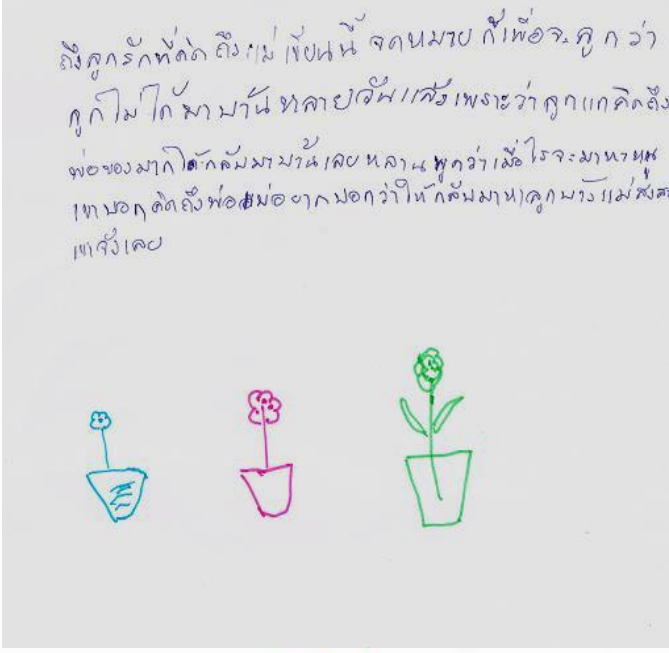 ถึงลูกรักที่คิดถึงแม่เขียนนี้จดหมายก็เพื่อจะลูกว่า
ลูกไม่ได้มาบ้านหลายวันแล้วเพราะว่าลูกแกคิดถึง
พ่อของมากได้กลับมาบ้านเลยหลานพูกว่าเมื่อไรจะมาหาหนู
เขาบอกคิดถึงพ่อแม่อยากบอกว่าให้กลับมาหาลูกบ้างแม่สงสาร
เขาจังเลย